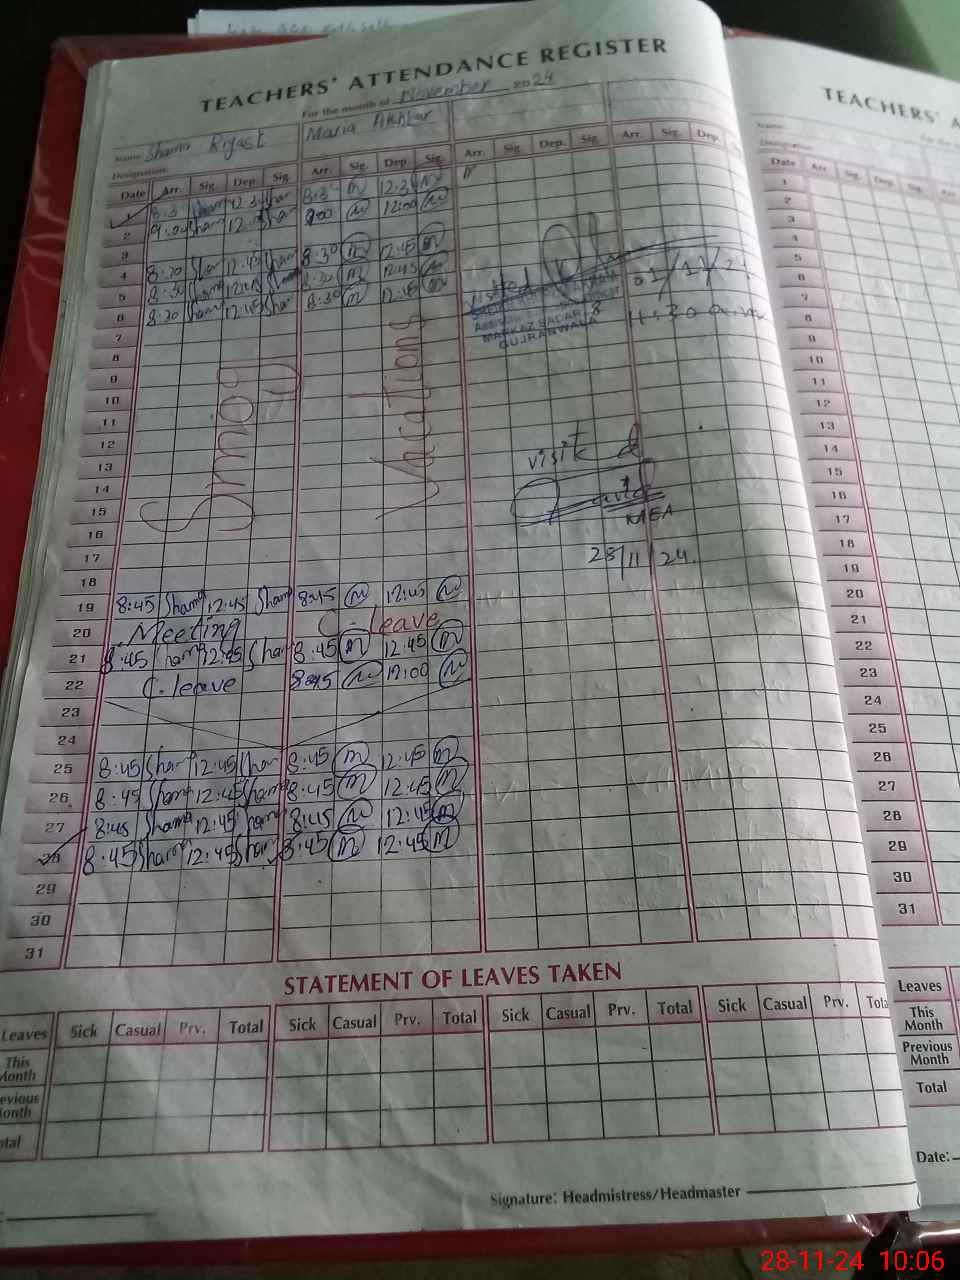 TEACHERS' ATTENDANCE REGISTER
For the month of November 2024
Name Shama Riyast Maria Akhtar
Designation
Date Arr. Sig. Dep. Sig. Arr. Sig. Dep. Sig. Arr. Sig. Dep. Sig. Arr. Sig. Dep.
1 8:3 12:3 8:3 m 12:3 m
2 9:00 Sham 12:0 Sha 9:00 m 12:00 m
3
4 8:30 Sham 12:45 Sham 8:30 m 12:45 m
5 8:30 Sham 12:45 8:30 m 12:45 m
6 8:30 Sham 12:45 Sha 8:30 m 12:45 m
7
8
9
10
11
12
13
14
15
16
17
18
Smog Vacations
visited
MARKAZ SADAR 8
GUJRANWALA
01/11/24
visited
MEA
28/11/24
19 8:45 Sham 12:45 Sham 8:45 m 12:45 m
20 Meeting C. leave
21 8:45 Sham 12:45 Sha 8:45 m 12:45 m
22 C. leave 8:45 m 12:00 m
23
24
25 8:45 Sham 12:45 Sham 8:45 m 12:45 m
26 8:45 Sham 12:45 Sham 8:45 m 12:45 m
27 8:45 Sham 12:45 Sham 8:45 m 12:45 m
28 8:45 Sham 12:45 Sha 8:45 m 12:45 m
29
30
31
STATEMENT OF LEAVES TAKEN
Leaves Sick Casual Prv. Total Sick Casual Prv. Total Sick Casual Prv. Total Sick Casual Prv. Tota
This
Month
evious
onth
otal
Signature: Headmistress/Headmaster
TEACHERS' A
Name
Designation
Date Arr. Sig. Dep. Sig. Arr
1
2
3
4
5
6
7
8
9
10
11
12
13
14
15
16
17
18
19
20
21
22
23
24
25
26
27
28
29
30
31
Leaves
This
Month
Previous
Month
Total
Date:
28-11-24 10:06